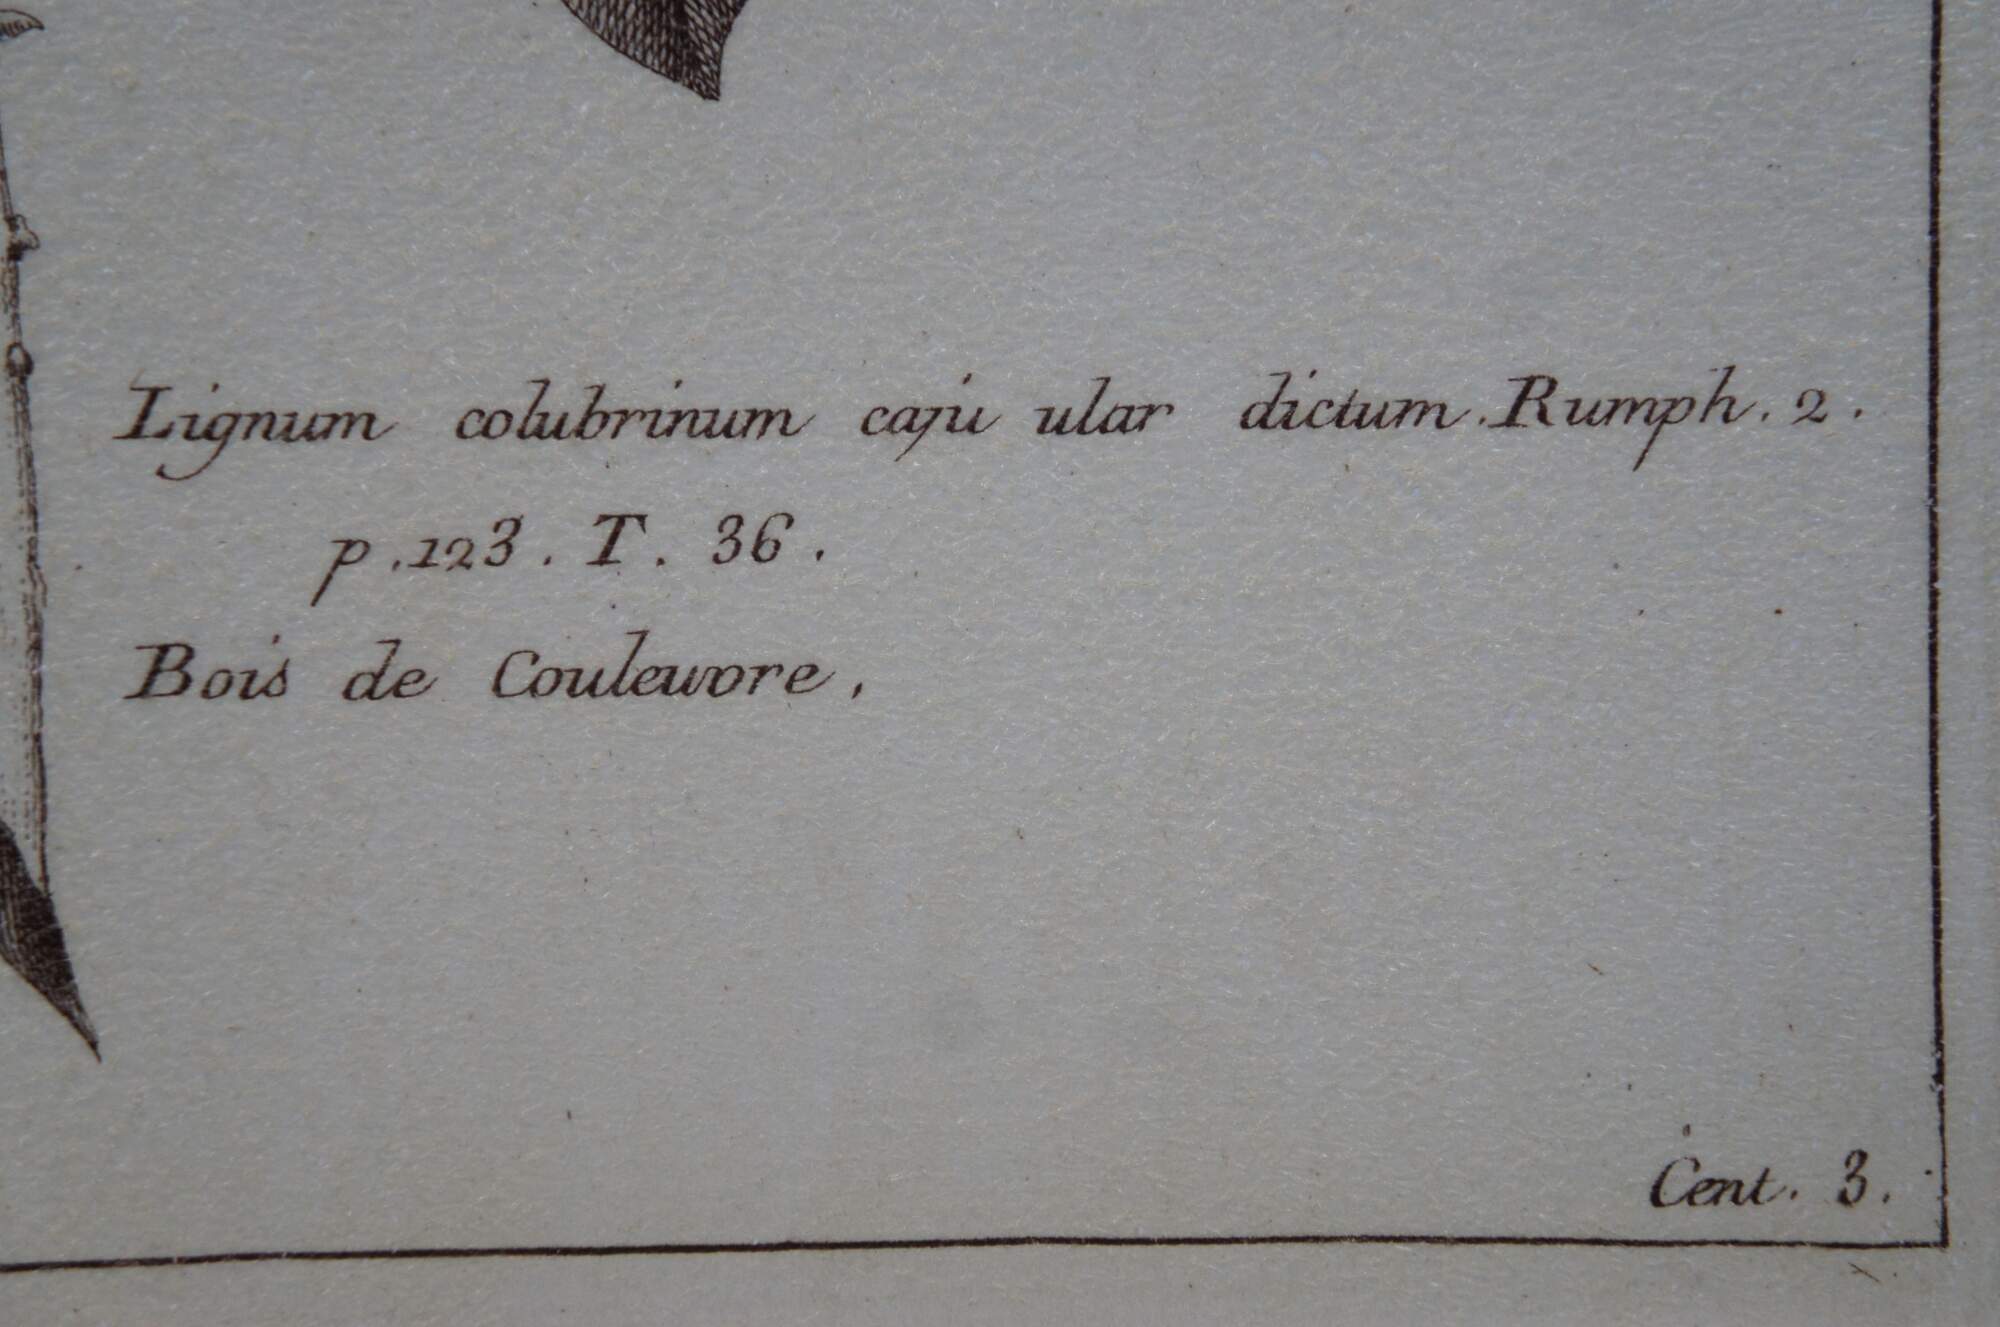 Lignum colubrinum caju ular dictum. Rumph. 2.
p. 123. T. 36.
Bois de Couleuvre.
Cent. 3.